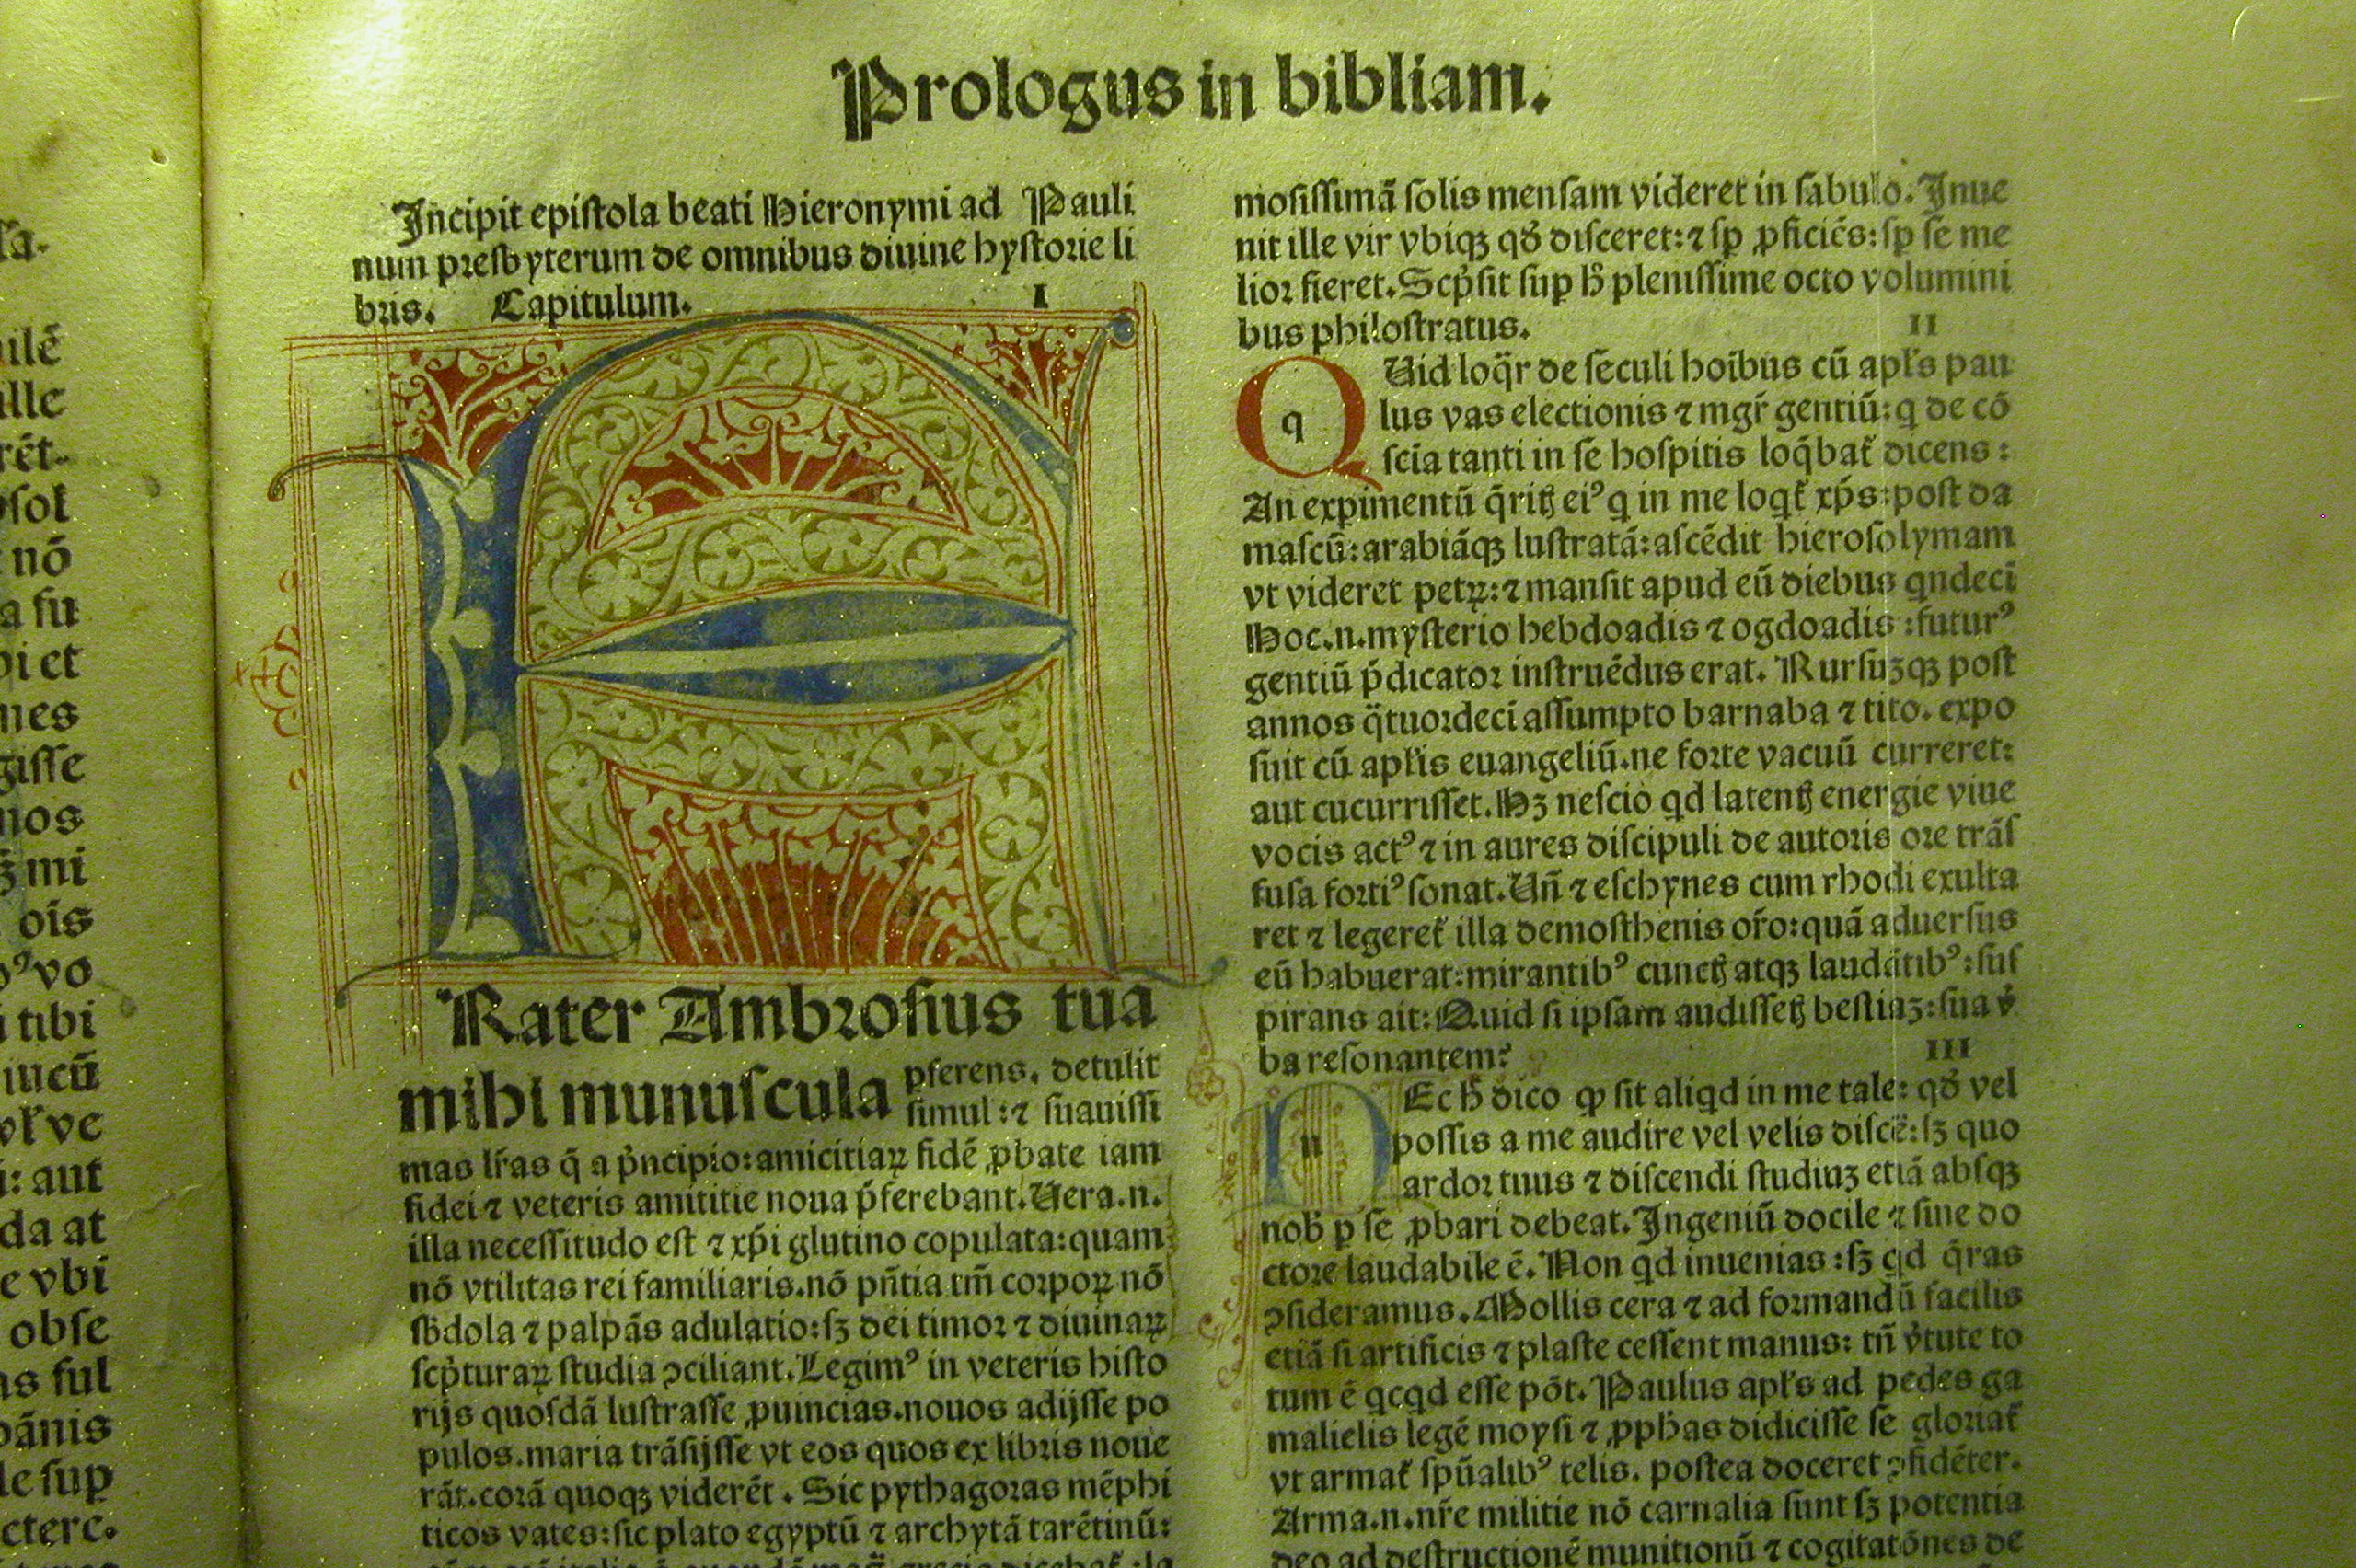 Prologus in bibliam.
Incipit epistola beati Hieronymi ad Pauli
num presbyterum de omnibus diuine hystorie li
bris. Capitulum. I
F
Rater Ambrosius tua
mihi munuscula pferens. detulit
simul :⁊ suauissi
mas lr̃as q̃ a p̍ncipio:amicitiaꝝ fidẽ ꝓbate iam
fidei ⁊ veteris amititie noua p̃ferebant.Uera.n.
illa necessitudo est ⁊ xp̃i glutino copulata:quam
nõ vtilitas rei familiaris.nõ pñtia tm̃ corpoꝝ nõ
sb̃dola ⁊ palpãs adulatio:sꝫ dei timor ⁊ diuinaꝝ
scp̍turaꝝ studia ↄciliant.Legimꝰ in veteris histo
rijs quosdã lustrasse ꝓuincias.nouos adijsse po
pulos.maria trãsijsse vt eos quos ex libris noue
rãt.corã quoqꝫ viderẽt. Sic pythagoras mẽphi
ticos vates:sic plato egyptũ ⁊ archytã tarẽtinũ:
mosissimã solis mensam videret in sabulo.Inue
nit ille vir vbiqꝫ qđ disceret:⁊ sꝑ ꝓficiẽs:sꝑ se me
lior fieret.Scp̍sit suꝑ h̃ plenissime octo volumini
bus philostratus. II
Q q Uid loq̃r de seculi hoĩbus cũ apl̃s pau
lus vas electionis ⁊ mgr̃ gentiũ:q de cõ
scia tanti in se hospitis loq̃bat̃ dicens:
An exꝑimentũ q̃ritꝭ eiꝰ q in me loqt̃ xp̃s:post da
mascũ:arabiãqꝫ lustratã:ascẽdit hierosolymam
vt videret petꝝ:⁊ mansit apud eũ diebus qndeci
Hoc.n.mysterio hebdoadis ⁊ ogdoadis:futurꝰ
gentiũ p̃dicator instruẽdus erat. Rursuꝫqꝫ post
annos q̃tuordeci assumpto barnaba ⁊ tito. expo
suit cũ apl̃is euangeliũ.ne forte vacuũ curreret:
aut cucurrisset.Hꝫ nescio qd latentꝭ energie viue
vocis actꝰ ⁊ in aures discipuli de autoris ore trãs
fusa fortiꝰ sonat.Uñ ⁊ eschynes cum rhodi exulta
ret ⁊ legeret̃ illa demosthenis or̃o:quã aduersus
eũ habuerat:mirantibꝰ cunctꝭ atqꝫ laudãtibꝰ:sus
pirans ait:Quid si ipsam audissetꝭ bestiaꝫ:sua v̾
ba resonantem? III
N n Ec h̃ dico ꝙ sit aliqd in me tale: qđ vel
possis a me audire vel velis discẽ:sꝫ quo
ardor tuus ⁊ discendi studiuꝫ etiã absqꝫ
nob̃ ꝑ se ꝓbari debeat.Ingeniũ docile ⁊ sine do
ctore laudabile ẽ. Non qd inuenias:sꝫ qd q̃ras
ↄsideramus.Mollis cera ⁊ ad formandũ facilis
etiã si artificis ⁊ plaste cessent manus: tñ v̾tute to
tum ẽ qcqd esse põt. Paulus apl̃s ad pedes ga
malielis legẽ moysi ⁊ ꝓph̃as didicisse se gloriat̃
vt armat̃ spũalibꝰ telis. postea doceret ↄfidẽter.
Arma.n.nr̃e militie nõ carnalia sunt sꝫ potentia
deo ad destructionẽ munitionũ ⁊ cogitatõnes de